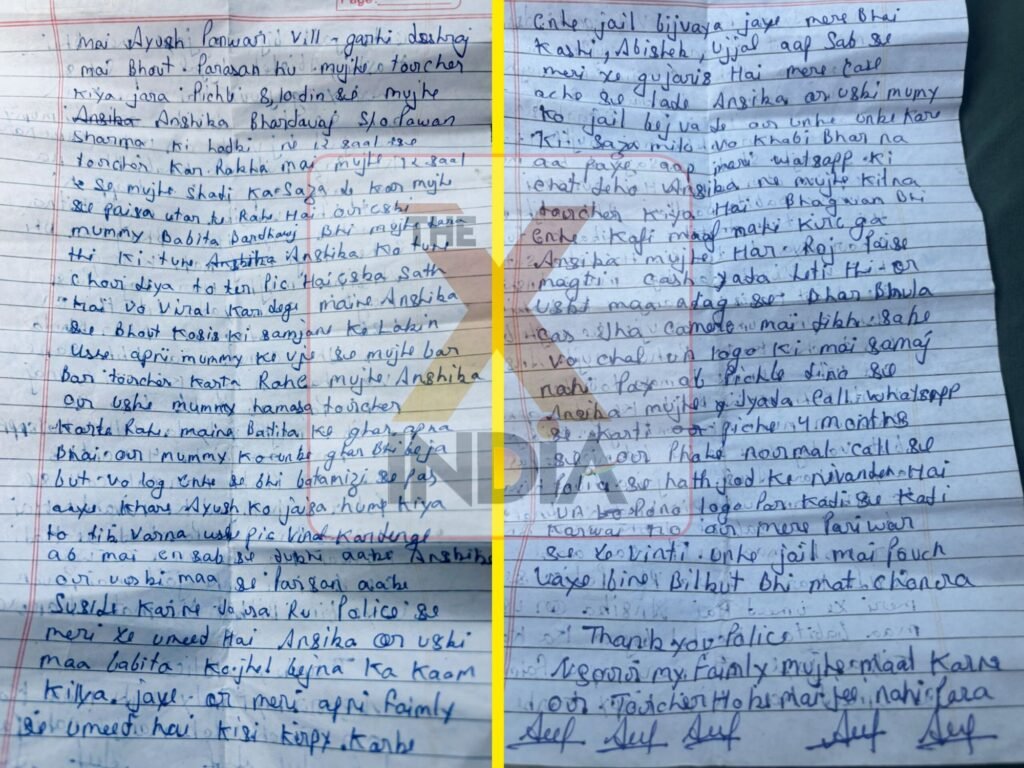 Page:
mai Ayush Panwar Vill - garhi doshraj
mai Bhout Parasan hu mujhe tourcher
Kiya jara Pichle 8,10 din se mujhe
Anshika Anshika Bhardawaj S/o Pawan
Sharma ki ladki ne 1 saal se
tourcher Kar Rakha mai mujhe 1 saal
se mujhe Shadi Ka Saza de kar mujhe
se paisa utar te Rahe Hai or uski
mummy Babita Bardhawaj Bhi mujhe
thi Ki tune Anshika Anshika Ko
Chori diya to teri Pic Hai uske Sath
Hai vo Viral Kar degi maine Anshika
se Bhout Kosis ki samjane Ko Lakin
Usne apni mummy ke se mujhe bar
Bar tourcher Karta Rahe mujhe Anshika
or ushe mummy hamasa tourcher
Karte Rahe. maine Babita Ke ghar apna
Bhai or mummy Ko unke ghar Bhi beja
but vo log unhe se bhi batamizi se
aaye Ayush Ko jaisa hume Kiya
to tik Varna uske pic Viral Kardenge
ab mai en sab se dukhi aake Anshika
or uski maa se Parsan aake
Suside Karne Ja raha Hu Police se
meri ye umeed Hai Ansika or uski
maa babita Ko jhel bejna Ka Kaam
Kiya jaye or meri apni Faimly
se umeed hai Kisi Karke
Enhe jail bijvaya jaye mere Bhai
Kashi, Abishek, Ujjal aap Sab se
meri ye gujaris Hai mere Case
ache se lade Ansika or uski mumy
Ko jail bejva de or unhe unke kare
Ki Saza mile vo Khabi Bhar na
aa paye aap meri watsapp Ki
chat dekho Ansika ne mujhe Kitna
tourcher Kiya Hai Bhagwan Bhi
Enhe Kafi maaf nahi Karega
Ansika mujhe Har Roj Paise
magti cash jyada leti thi or
uski maa alag se Dhar Bhula
Camere mai dikh sake
vo chal un logo Ki mai samaj
nahi Paya ab Pichle dino se
Ansika mujhe jyada Call whatsapp
se Karti or piche 4 months
se or Phale normal call se
Police se hath jod Ke nivanden Hai
un Dono logo Par Kadi se Kadi
Karwai Ho or mere Pariwar
se ye Vinti unhe jail mai Pouch
vaye bine Bilkut Bhi mat Chonra
Thank you Police
my Faimly mujhe maaf Karne
or Tourcher Hoke nahi Para
THE
X
INDIA